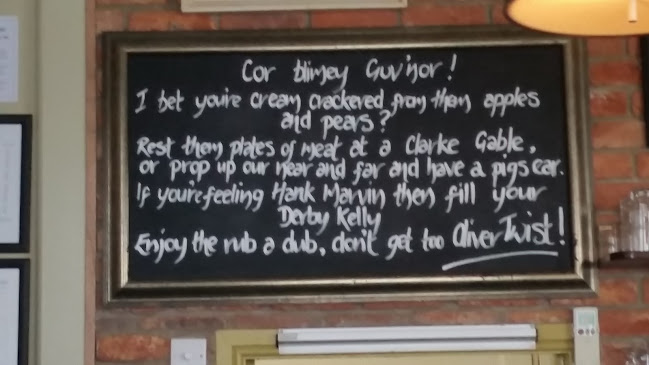 Cor blimey Guv'nor!
I bet you're cream crackered from them apples
and pears?
Rest them plates of meat at a Clarke Gable,
or prop up our near and far and have a pigs ear.
If you're feeling Hank Marvin then fill your
Derby Kelly
Enjoy the rub a dub, don't get too Oliver Twist!